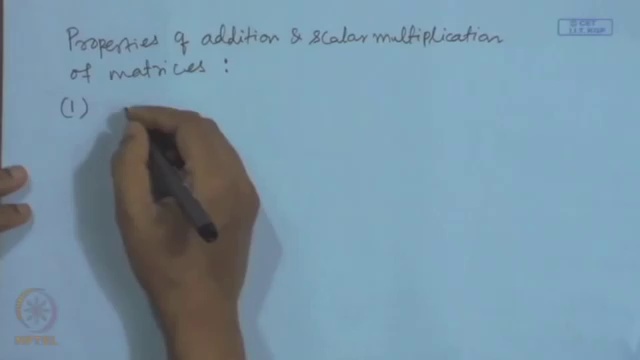 Properties of addition & scalar multiplication
of matrices :
(1)
© CET
I.I.T. KGP
NPTEL